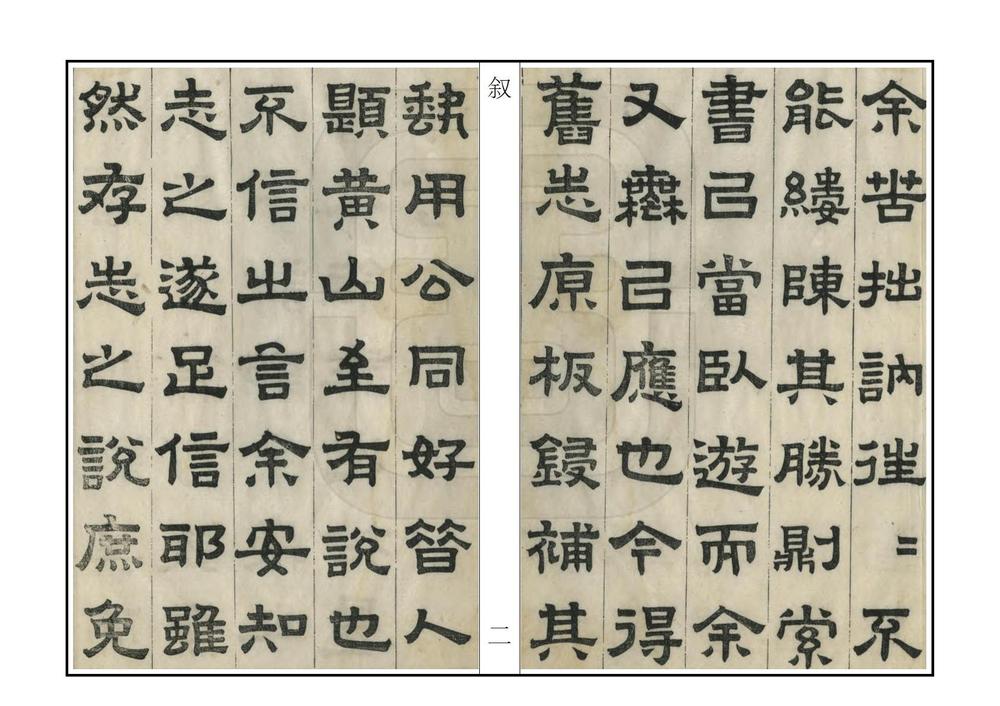 余苦拙訥往〻不
能縷陳其勝則索
書已當臥遊而余
又無已應也今得
舊志原板鋟補其
叙
二
缺用公同好昔人
題黃山至有說也
不信㞢言余安知
志之遂足信耶雖
然存志之說庶免